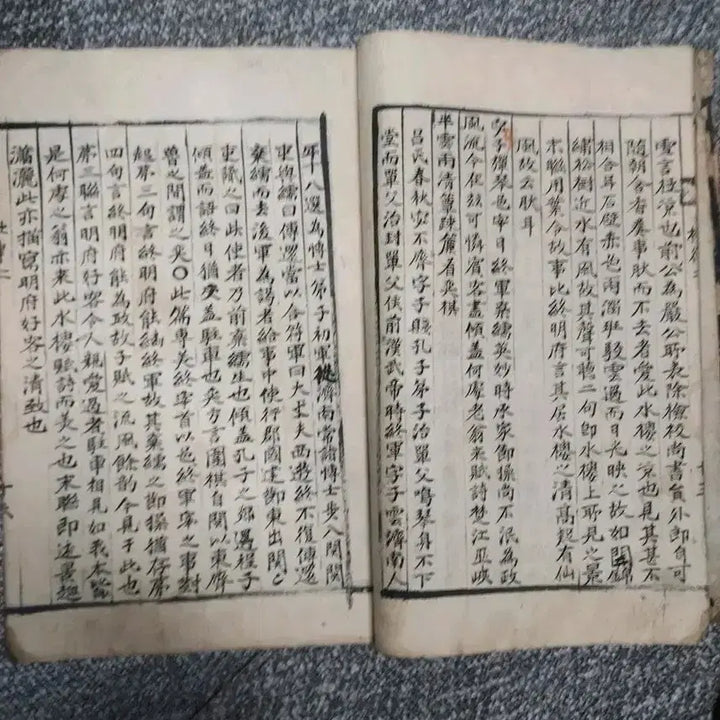 雲言杜涼也前公為嚴公所表除檢校尚書員外郎自可
隨朝含香奏事耿而不去者愛此水樓之涼也見其甚不
相合耳石壁赤也雨濁班駮雲過而日光映之故如開錦
繡松樹近水有風故其聲可聽二句即水樓上所見之景
末聯用葉令故事比終明府言其居水樓之清高超有仙
風故云耿耳
宓子彈琴邑宰日終軍棄繻英妙時承家節操尚不泯為政
風流今在茲可憐賓客盡傾盖何處老翁來賦詩楚江巫峽
半雲雨清簟疎簾看奕棋
呂氏春秋宓不齊字子賤孔子弟子治單父鳴琴身不下
堂而單父治封單父侯前漢武帝時終軍字子雲濟南人
年十八選為愽士弟子初軍從濟南當詣愽士步入關関
吏與繻曰傳還當以合符軍曰大丈夫西遊終不復傳還
棄繻而去後軍為謁者給事中使行郡國建節東出関〻
吏識之曰此使者乃前棄繻生也傾盖孔子之郯遇程子
傾盖而語終日猶交盖駐車也奕方言圍棋自関以東齊
魯之間謂之奕〇此篇專美終宰首以宓終軍宰之事對
起第三句言終明府能繼終軍故其棄繻之節操猶存第
四句言終明府能為政故子賤之流風餘韵今見于此也
第三聯言明府好客令人親愛過者駐車相見如我本
是何處之翁亦來此水樓賦詩而美之也末聯即述景趣
瀟灑此亦描寫明府好客之清致也